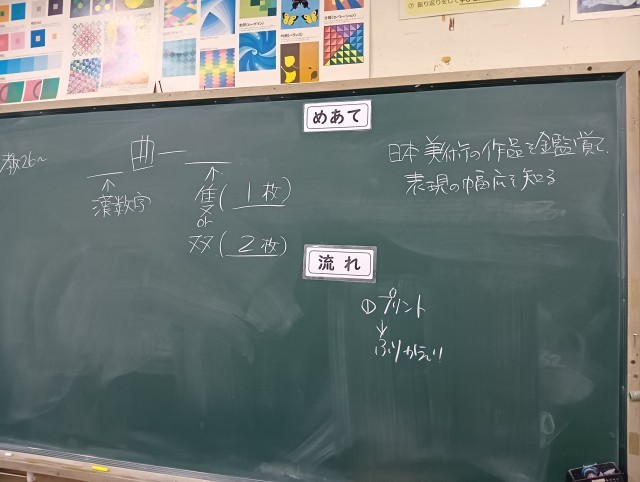 めあて
日本美術の作品を鑑賞して、
表現の幅広さを知る
教26~
曲一
漢数字
隻(1枚)
or
双(2枚)
流れ
①プリント
↓
ふりかえり